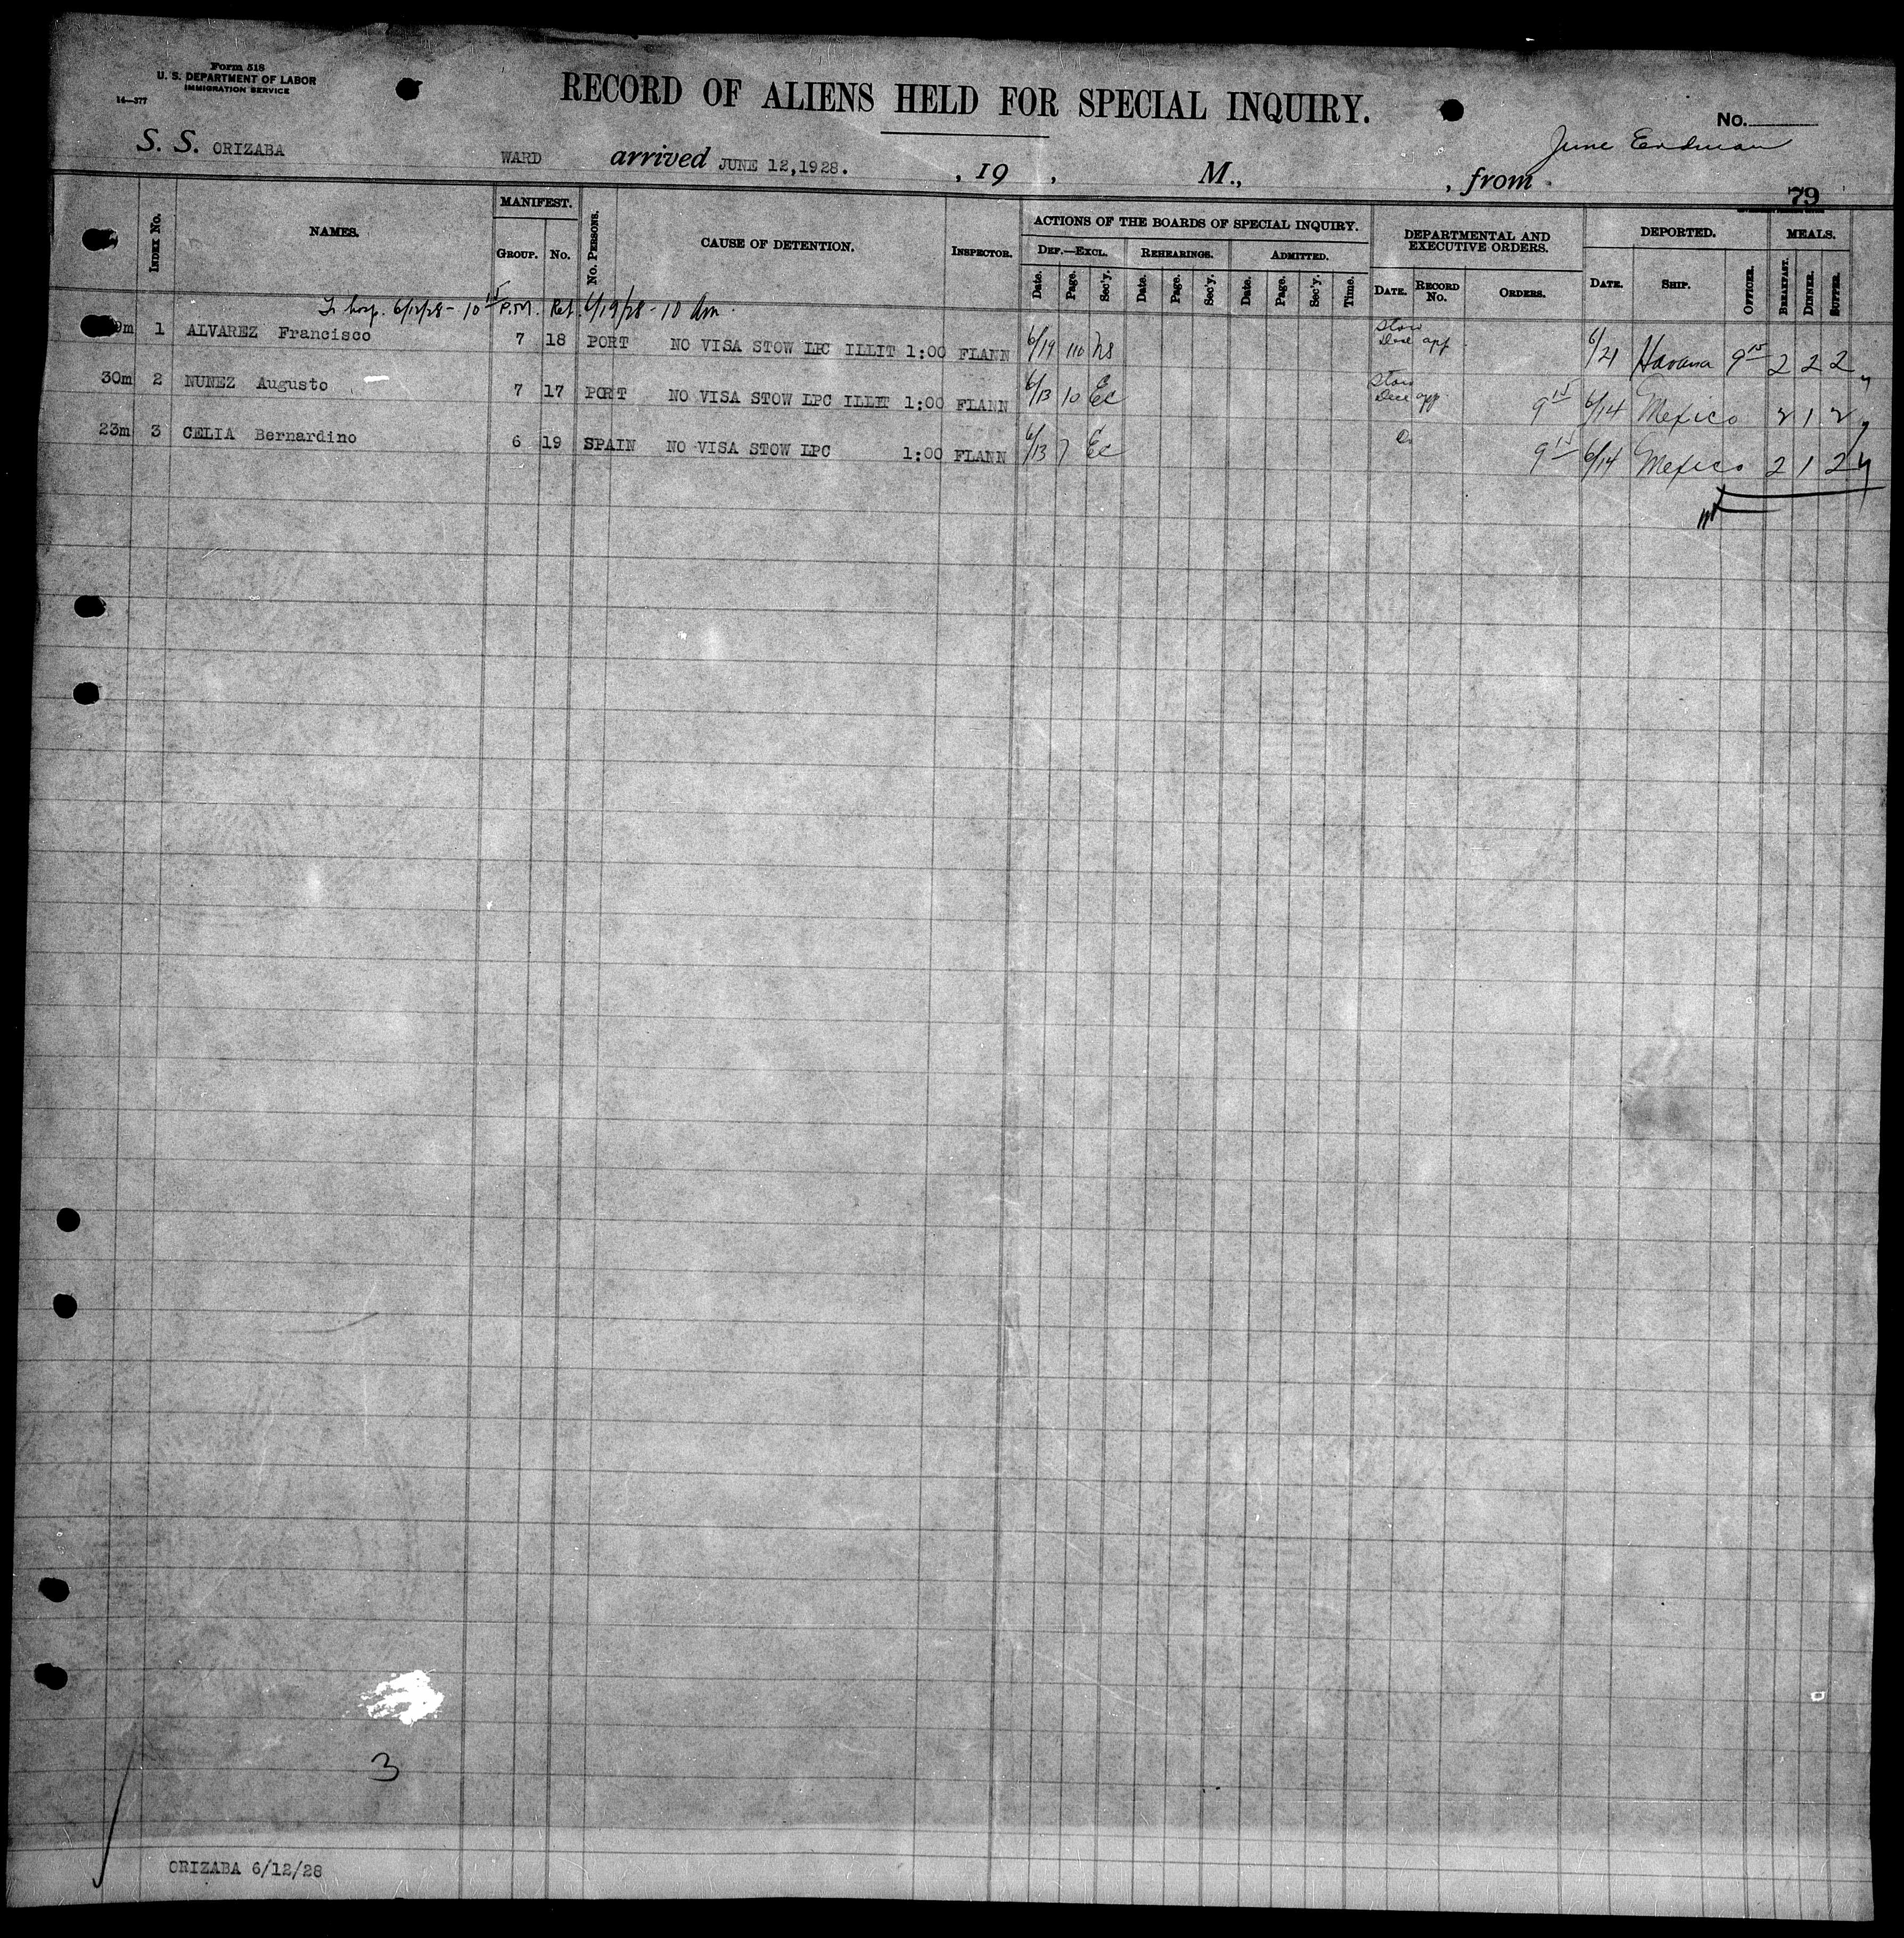 Form 518
U. S. DEPARTMENT OF LABOR
IMMIGRATION SERVICE
14—377
RECORD OF ALIENS HELD FOR SPECIAL INQUIRY.
No.
S. S. ORIZABA WARD arrived JUNE 12,1928. , 19 , M., , from
June
79
INDEX NO. NAMES. MANIFEST. GROUP. NO. NO. PERSONS. CAUSE OF DETENTION. INSPECTOR. ACTIONS OF THE BOARDS OF SPECIAL INQUIRY. DEF.—EXCL. Date. Page. Sec'y. REHEARINGS. Date. Page. Sec'y. ADMITTED. Date. Page. Sec'y. Time. DEPARTMENTAL AND EXECUTIVE ORDERS. DATE. RECORD NO. ORDERS. DEPORTED. DATE. SHIP. OFFICER. MEALS. BREAKFAST. DINNER. SUPPER.
hosp. 6/12/28 - 10 15 P.M. Ret. 6/19/28 - 10 Am.
9m 1 ALVAREZ Francisco 7 18 PORT NO VISA STOW LPC ILLIT 1:00 FLANN 6/19 110 6/21 Havana 9 15 2 2 2
30m 2 NUNEZ Augusto 7 17 PORT NO VISA STOW LPC ILLIT 1:00 FLANN 6/13 10 Ec 9 15 6/14 Mexico 2 1 2
23m 3 CELIA Bernardino 6 19 SPAIN NO VISA STOW LPC 1:00 FLANN 6/13 7 Ec 9 15 6/14 Mexico 2 1 2
3
ORIZABA 6/12/28